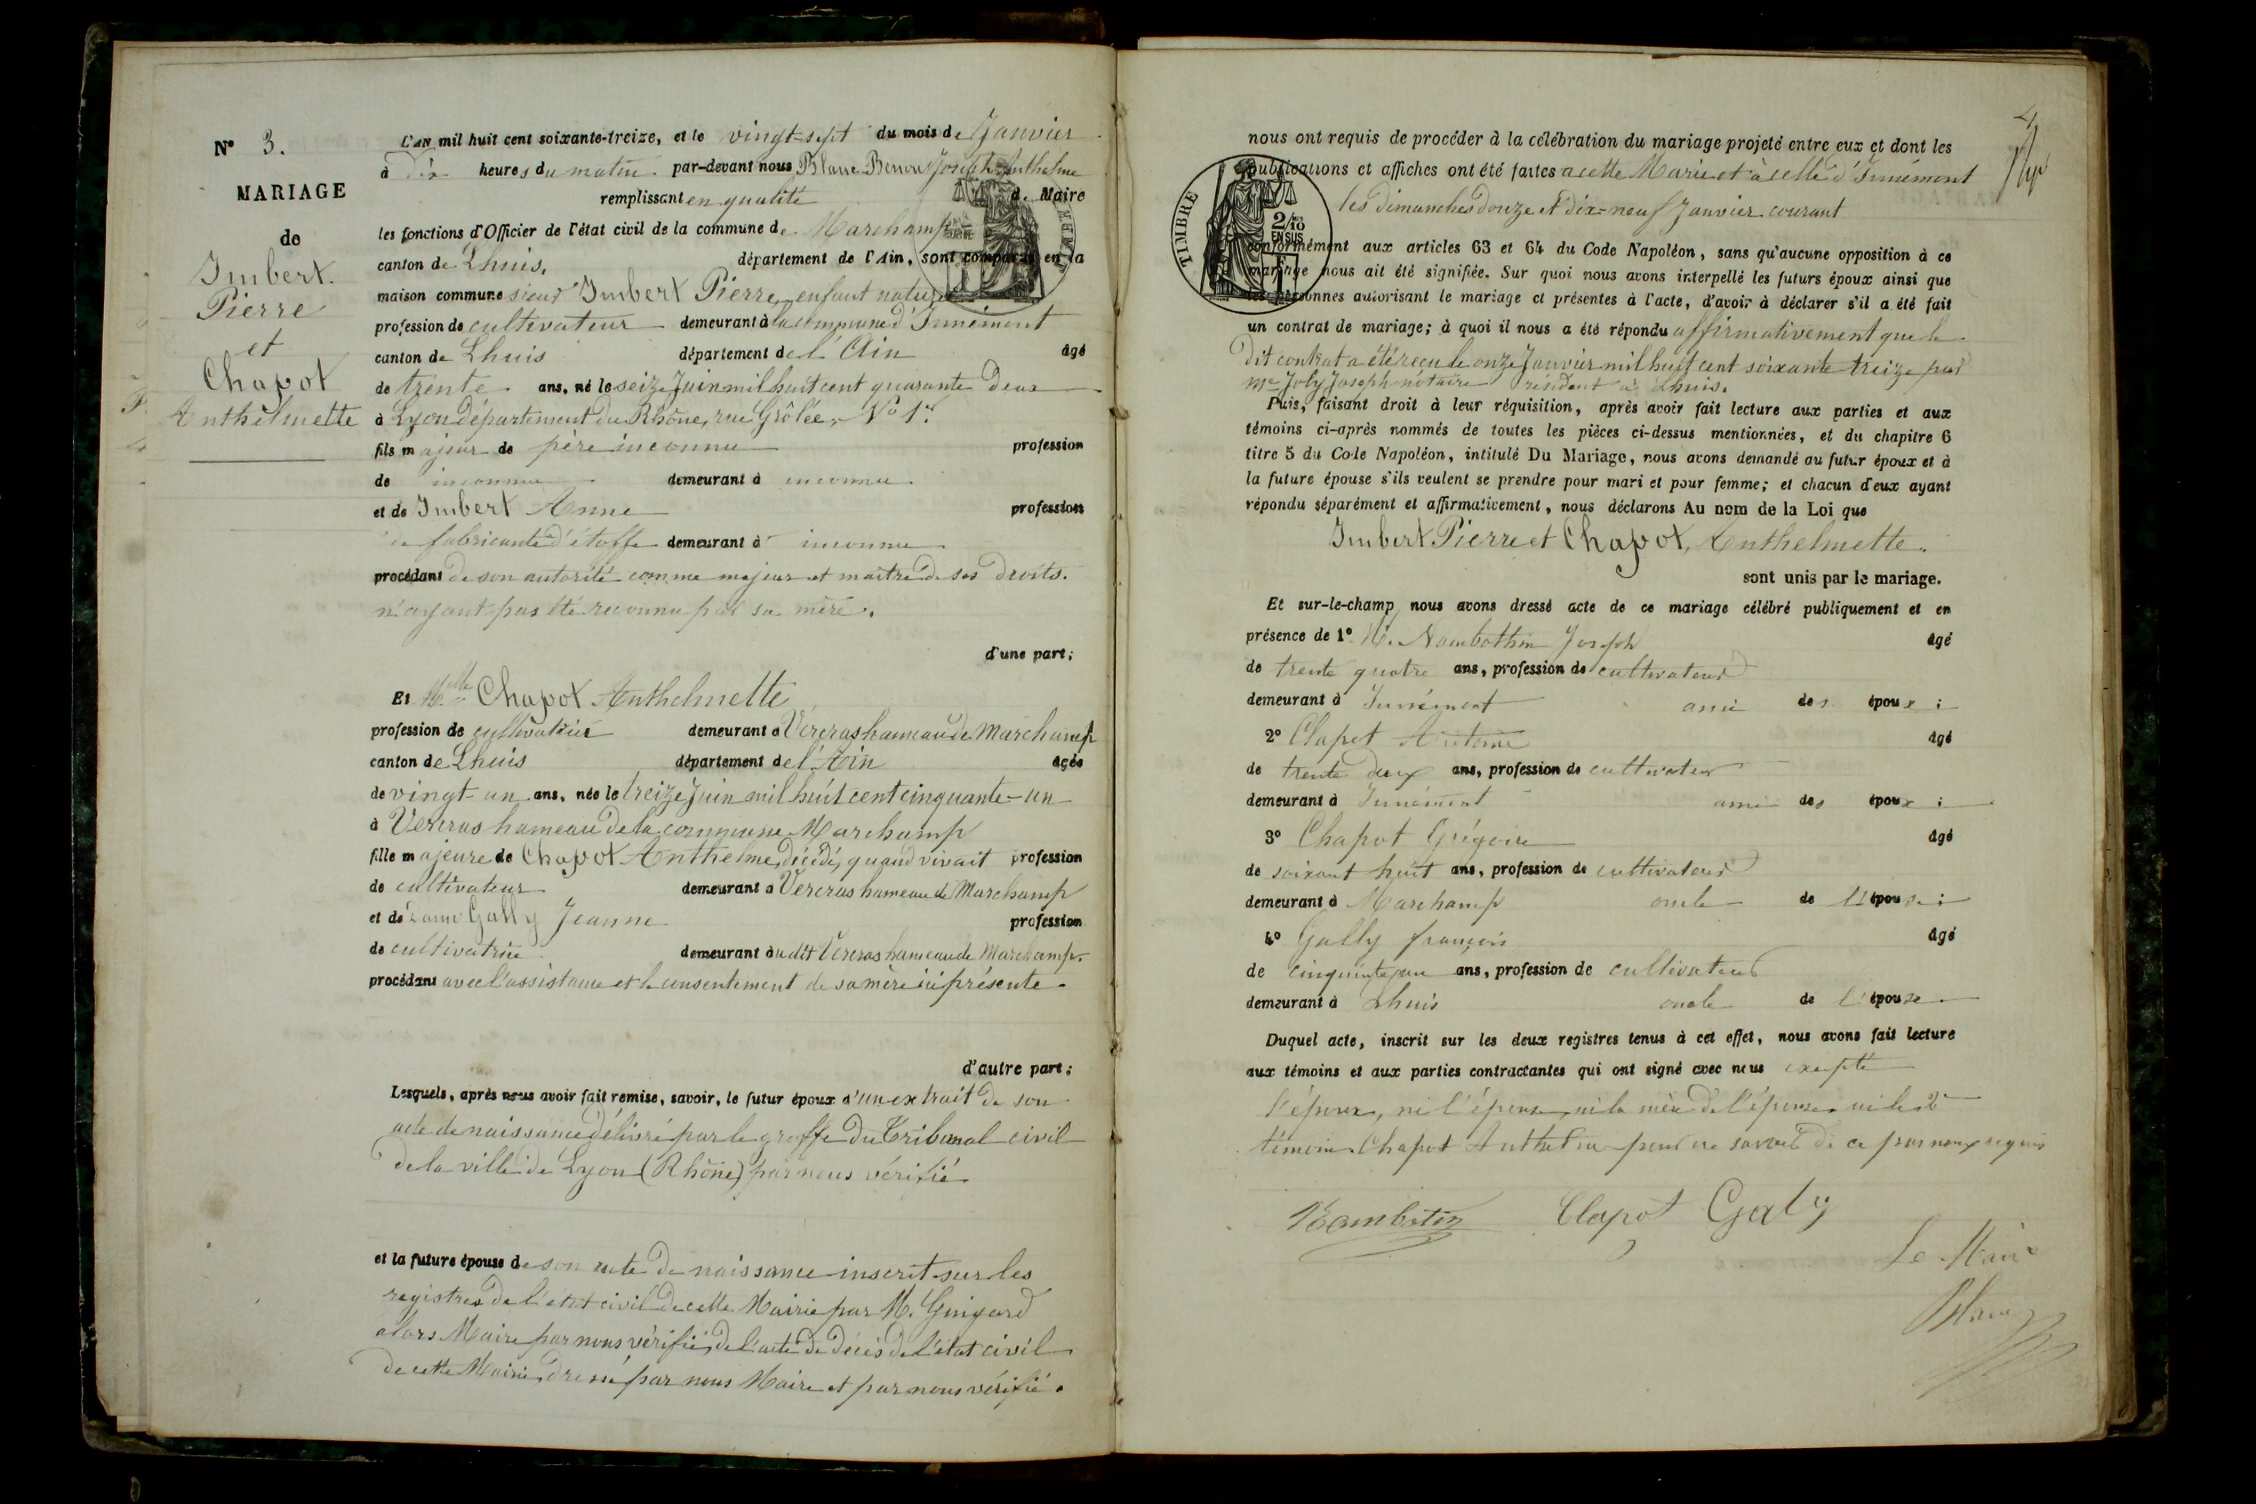 N° 3.
MARIAGE
de
Imbert
Pierre
et
Chapot
Anthelmette
L'AN mil huit cent soixante-treize, et le vingt-sept du mois de Janvier
à dix heures du matin par-devant nous Blanc Benon Joseph Anthelme
remplissant en qualité de Maire
les fonctions d'Officier de l'état civil de la commune de Marchamp
canton de Lhuis, département de l'Ain, sont comparus en la
maison commune sieur Imbert Pierre, enfant naturel
profession de cultivateur demeurant à la commune d'Innimont
canton de Lhuis département de l'Ain âgé
de trente ans, né le seize Juin mil huit cent quarante deux
à Lyon département du Rhône, rue Grôlée, N° 1er
fils majeur de père inconnu profession
de inconnue demeurant à inconnu
et de Imbert Anne profession
de fabricante d'étoffe demeurant à inconnue
procédant de son autorité comme majeur et maître de ses droits.
n'ayant pas été reconnu par sa mère.
d'une part;
Et Melle Chapot Anthelmette
profession de cultivatrice demeurant à Vercras hameau de Marchamp
canton de Lhuis département de l'Ain âgée
de vingt-un ans, née le treize Juin mil huit cent cinquante-un
à Vercras hameau de la commune Marchamp
fille majeure de Chapot Anthelme, décédé, quand vivait profession
de cultivateur demeurant à Vercras hameau de Marchamp
et de dame Gally Jeanne profession
de cultivatrice demeurant à udit Vercras hameau de Marchamp.
procédant avec l'assistance et le consentement de sa mère ici présente.
d'autre part;
Lesquels, après nous avoir fait remise, savoir, le futur époux d'un extrait de son
acte de naissance délivré par le greffe du Tribunal civil
de la ville de Lyon (Rhône) par nous vérifié
et la future épouse de son acte de naissance inscrit sur les
registres de l'état civil de cette Mairie par M. Guigard
alors Maire par nous vérifié, de l'acte de décès de l'état civil
de cette Mairie, dressé par nous Maire et par nous vérifié.
4
TIMBRE
2/10
EN SUS
nous ont requis de procéder à la célébration du mariage projeté entre eux et dont les
publications et affiches ont été faites à cette Mairie et à celle d'Innimont
les dimanches douze et dix-neuf Janvier courant
conformément aux articles 63 et 64 du Code Napoléon, sans qu'aucune opposition à ce
mariage nous ait été signifiée. Sur quoi nous avons interpellé les futurs époux ainsi que
les personnes autorisant le mariage et présentes à l'acte, d'avoir à déclarer s'il a été fait
un contrat de mariage; à quoi il nous a été répondu affirmativement que le
dit contrat a été reçu le onze Janvier mil huit cent soixante treize par
Me Joly Joseph notaire résidant à Lhuis.
Puis, faisant droit à leur réquisition, après avoir fait lecture aux parties et aux
témoins ci-après nommés de toutes les pièces ci-dessus mentionnées, et du chapitre 6
titre 5 du Code Napoléon, intitulé Du Mariage, nous avons demandé au futur époux et à
la future épouse s'ils veulent se prendre pour mari et pour femme; et chacun d'eux ayant
répondu séparément et affirmativement, nous déclarons Au nom de la Loi que
Imbert Pierre et Chapot, Anthelmette.
sont unis par le mariage.
Et sur-le-champ nous avons dressé acte de ce mariage célébré publiquement et en
présence de 1° M. Nambothin Joseph âgé
de trente quatre ans, profession de cultivateur
demeurant à Innimont ami des époux;
2° Clapot Antoine âgé
de trente deux ans, profession de cultivateur
demeurant à Innimont ami des époux;
3° Chapot Grégoire âgé
de soixant huit ans, profession de cultivateur
demeurant à Marchamp oncle de l'épouse;
4° Gally françois âgé
de cinquante un ans, profession de cultivateur
demeurant à Lhuis oncle de l'épouse
Duquel acte, inscrit sur les deux registres tenus à cet effet, nous avons fait lecture
aux témoins et aux parties contractantes qui ont signé avec nous excepté
l'époux, ni l'épouse, ni la mère de l'épouse, ni le
témoin Chapot pour ne savoir de ce par nous requis
Nambotin Clapot Galy
Le Maire
Blanc